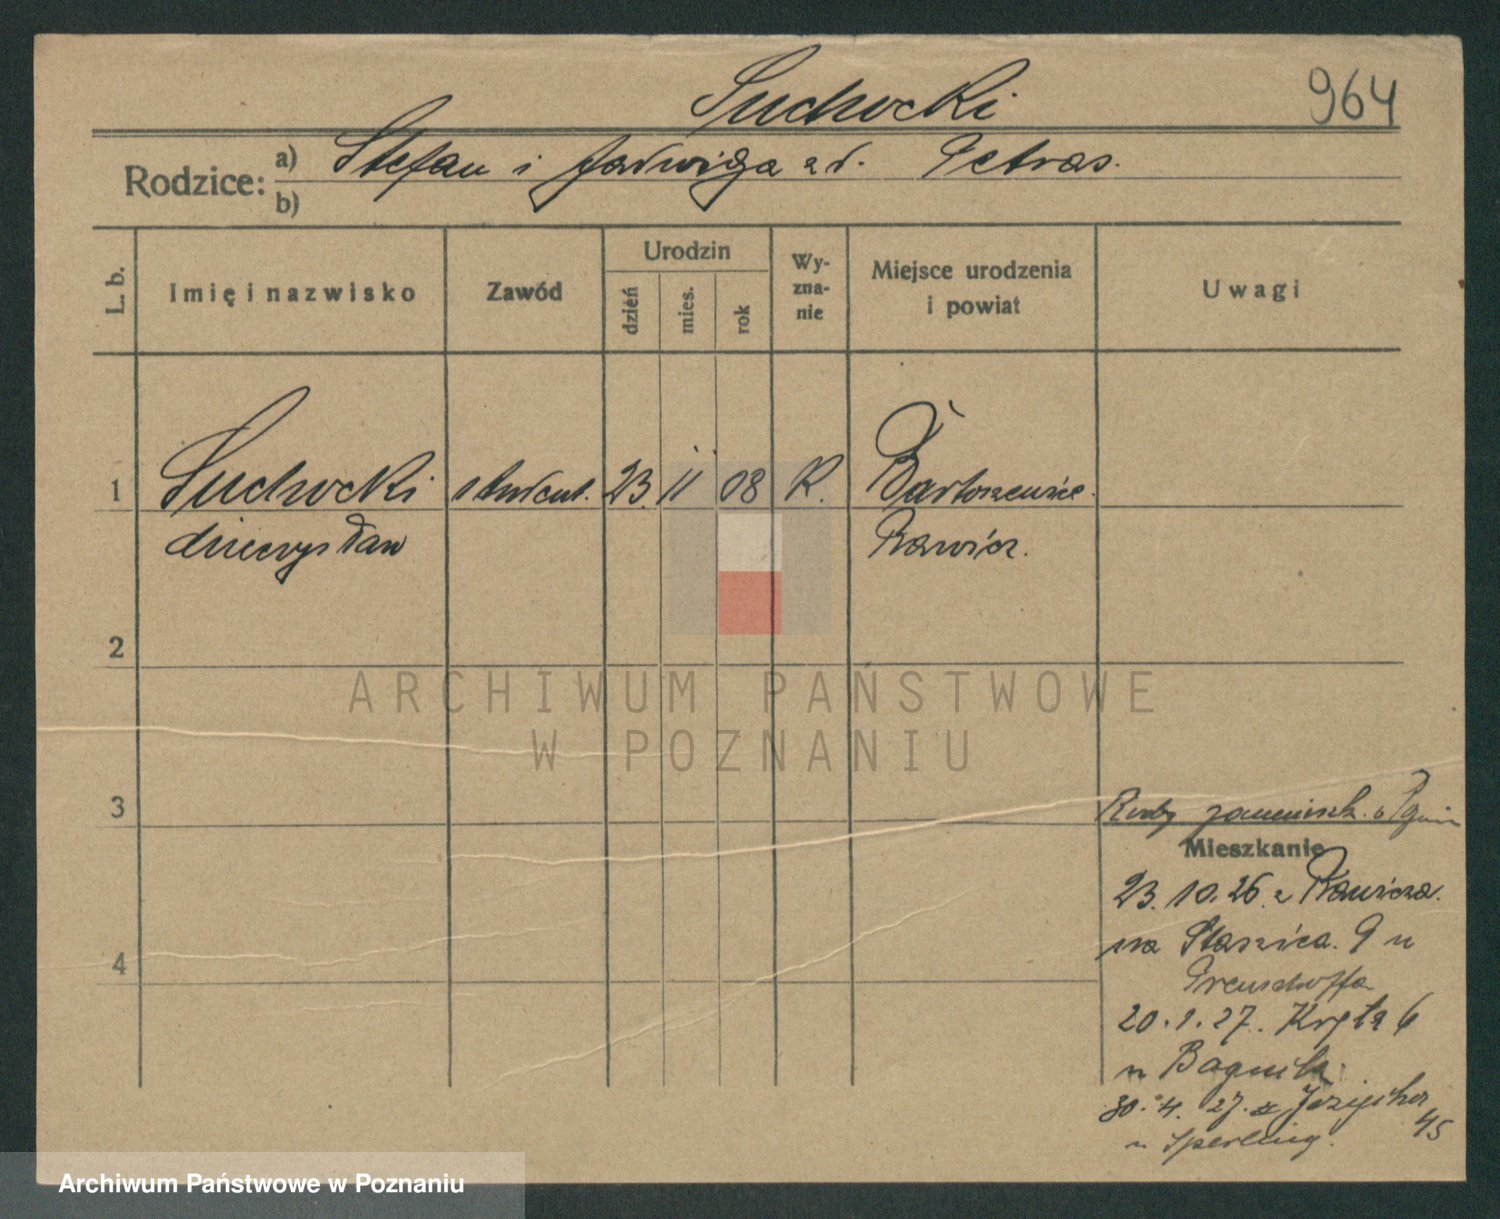 Suchocki
964
Rodzice:
a) Stefan i Jadwiga zd. Petras.
b)
L. b.
Imię i nazwisko
Zawód
Urodzin
dzień
mies.
rok
Wy-
zna-
nie
Miejsce urodzenia
i powiat
Uwagi
1
Suchocki student. 23. 11 08 K. Bartoszewice.
Mieczysław Rawicz.
2
ARCHIWUM PAŃSTWOWE
W POZNANIU
3
zamieszk.
Mieszkanie
23.10.26. z Rawicza.
na Staszica. 9 u
20.1.27. Kręta 6
u
30.4.27.
45
u Sperling.
4
Archiwum Państwowe w Poznaniu